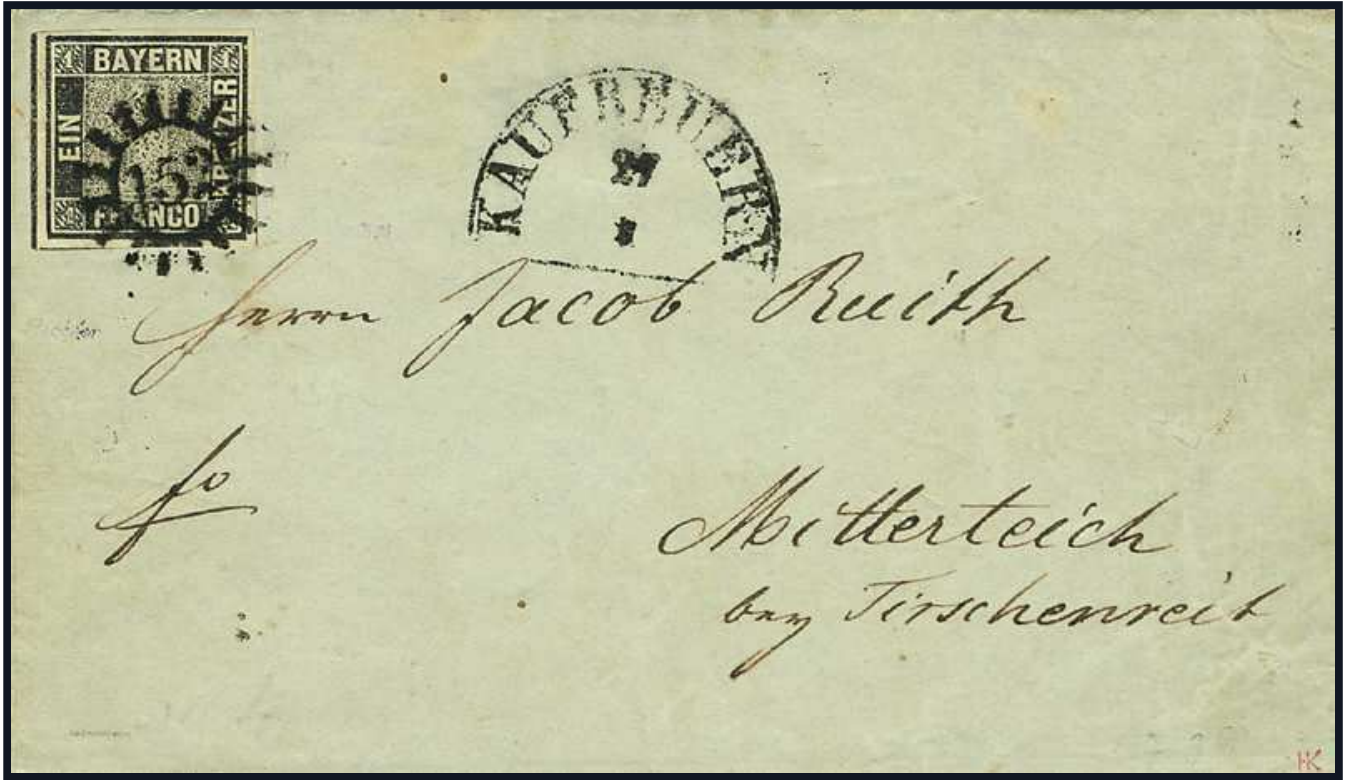 1 BAYERN 1
EIN
KREUZER
152
1 FRANCO
KAUFBEUERN
27
Herrn Jacob Ruith
fo
Mitterteich
bey Tirschenreit
HK